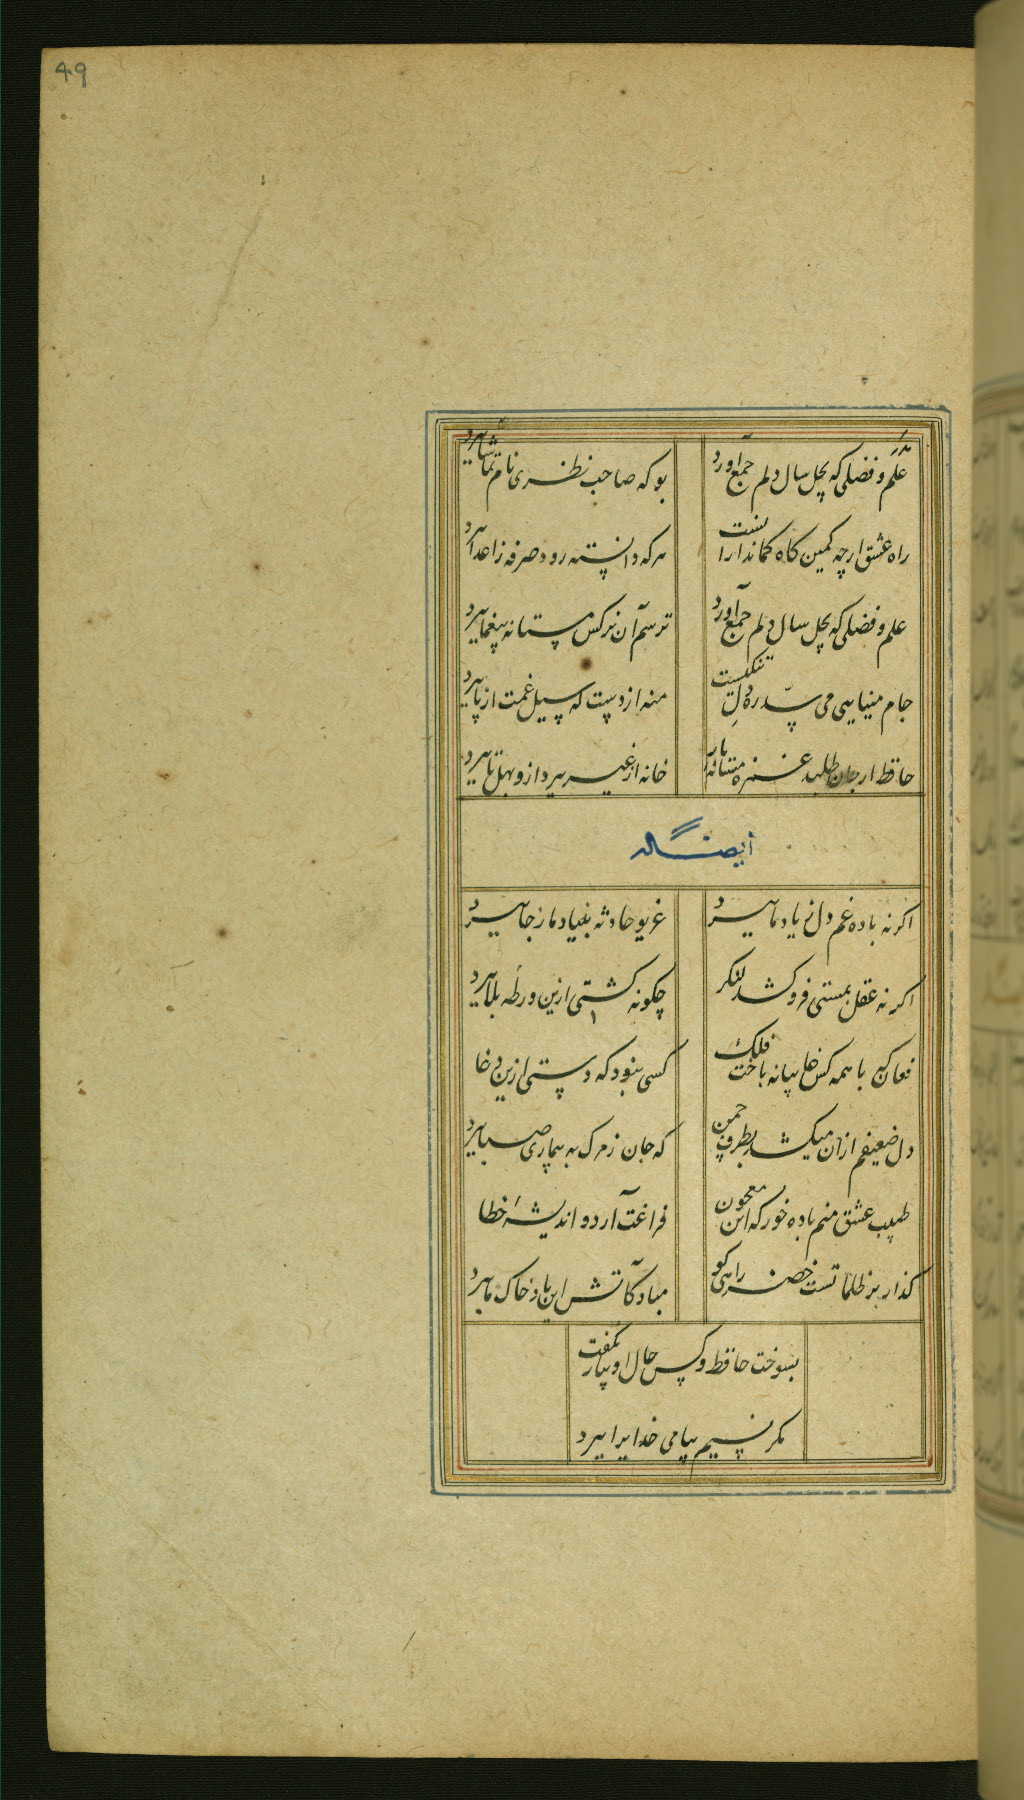 49
علم و فضلی که بچل سال دلم جمع آورد
بو که صاحب نظری نام تماشا ببرد
راه عشق ارچه کمین کاه کماندارانست
هر که دانسته رود صرفه ز اعدا ببرد
علم و فضلی که بچل سال دلم جمع آورد
ترسم آن نرکس مستانه بیغما ببرد
جام مینایی می سدّ ره تنکدلیست
منه از دست که سیل غمت از پا ببرد
حافظ ار جان طلبد غمزه مستانه یار
خانه از غیر بپرداز و بهل تا ببرد
ایضاله
اکر نه باده غم دل ز یاد ما ببرد
غریو حادثه بنیاد ما ز جا ببرد
اکر نه عقل بمستی فرو کشد لنکر
چکونه کشتی ازین ورطه بلا ببرد
فغان که با همه کس غایبانه باخت فلک
کسی نبود که دستی ازین دغا
دل ضعیفم از آن میکشد بطرف چمن
که جان ز مرک به بیماری صبا ببرد
طبیب عشق منم باده خور که این معجون
فراغت آرد و اندیشه خطا
کذار بر ظلماتست خضر راهی کو
مباد کآتش این باد خاک ما ببرد
بسوخت حافظ و کس حال او بیار نکفت
مکر نسیم پیامی خدایرا ببرد